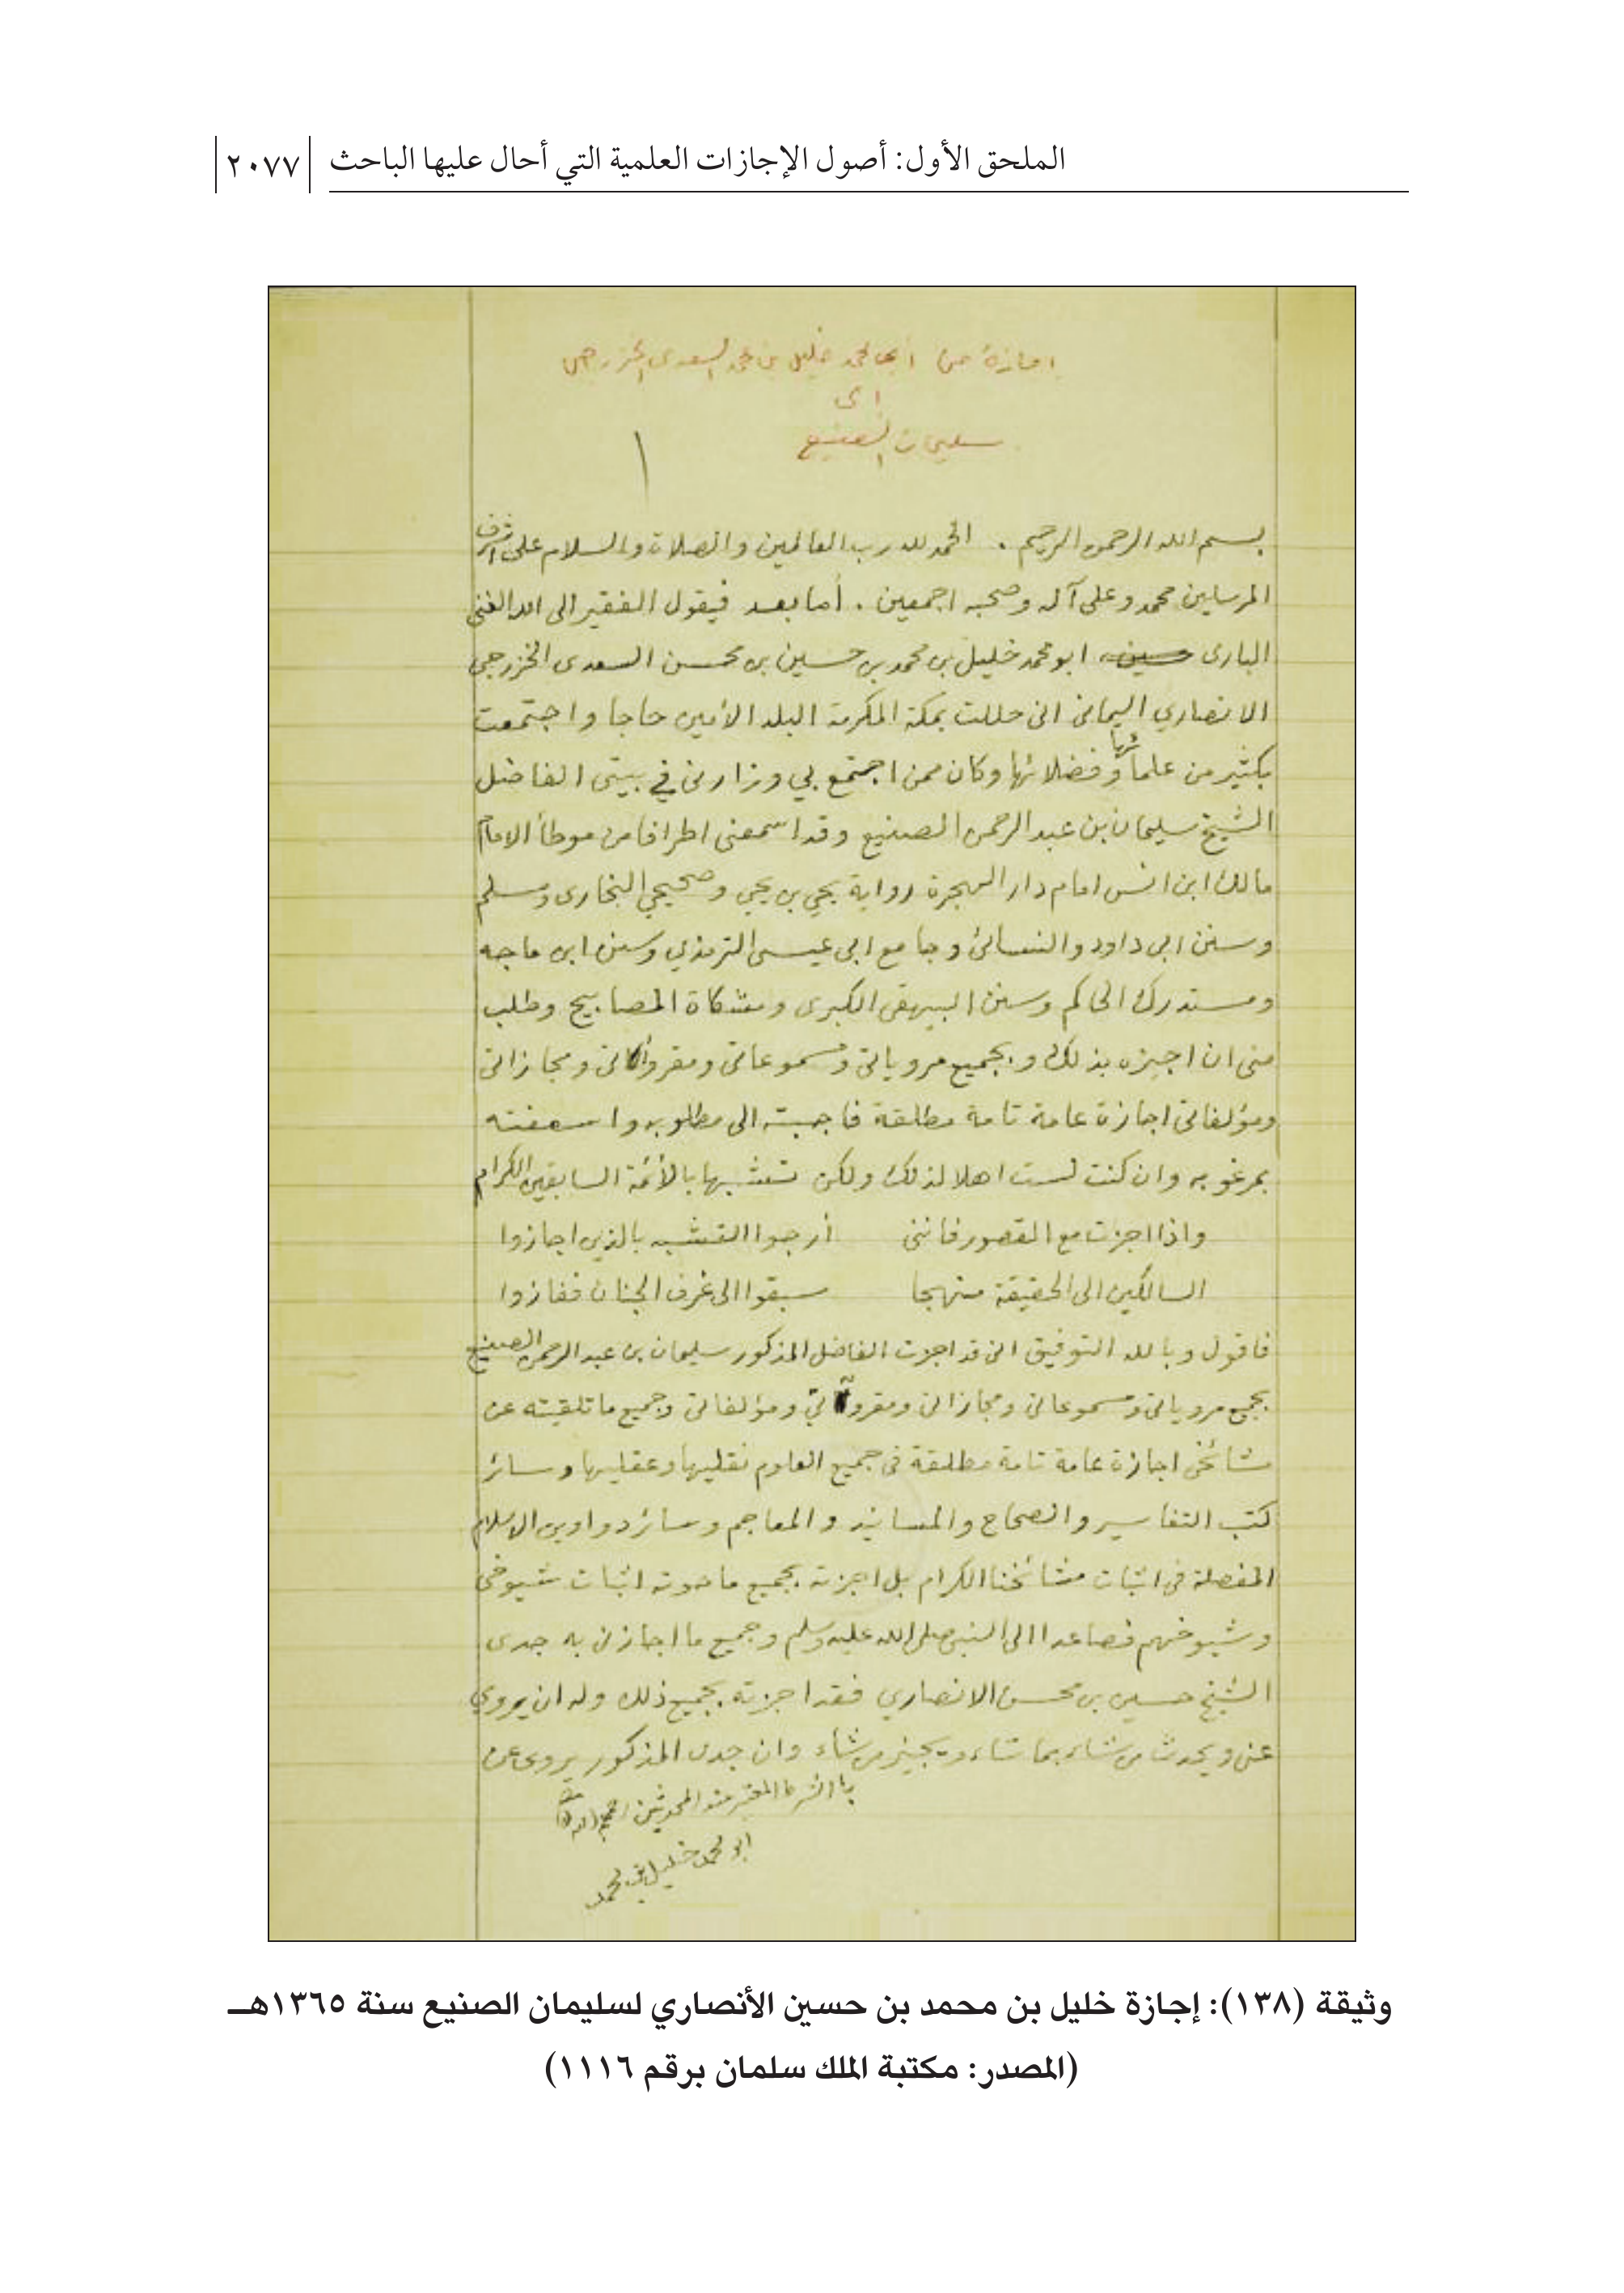 الملحق الأول: أصول الإجازات العلمية التي أحال عليها الباحث ٢٠٧٧
اجازة من ابي محمد خليل بن محمد السعدي الخزرجي
الى
سليمان الصنيع
١
بسم الله الرحمن الرحيم . الحمد لله رب العالمين والصلاة والسلام على اشرف
المرسلين محمد وعلى آله وصحبه اجمعين . أما بعد فيقول الفقير الى الله الغني
الباري ابو محمد خليل بن محمد بن حسين بن محسن السعدى الخزرجي
الانصاري اليماني اني حللت بمكة المكرمة البلد الأمين حاجا واجتمعت
بكثير من علمائها وفضلائها وكان ممن اجتمع بي وزارني في بيتي الفاضل
الشيخ سليمان بن عبد الرحمن الصنيع وقد اسمعني اطرافا من موطأ الامام
مالك ابن انس امام دار الهجرة رواية يحي بن يحي وصحيحي البخارى ومسلم
وسنن ابى داود والنسائي وجامع ابى عيسى الترمذي وسنن ابن ماجه
ومستدرك الحاكم وسنن البيهقي الكبرى ومشكاة المصابيح وطلب
منى ان اجيزه بذلك وبجميع مروياتى ومسموعاتى ومقروآتى ومجازاتى
ومؤلفاتى اجازة عامة تامة مطلقة فاجبته الى مطلوبه واسعفته
بمرغوبه وان كنت لست اهلا لذلك ولكن تشبها بالأئمة السابقين الكرام
واذا اجزت مع القصور فاننى أرجوا التشبه بالذين اجازوا
السالكين الى الحقيقة منهجا سبقوا الى غرف الجنان ففازوا
فاقول وبالله التوفيق انى قد اجزت الفاضل المذكور سليمان بن عبد الرحمن الصنيع
بجميع مروياتى ومسموعاتى ومجازاتى ومقروآتي ومؤلفاتى وجميع ما تلقيته عن
مشائخى اجازة عامة تامة مطلقة فى جميع العلوم نقليها وعقليها وسائر
كتب التفاسير والصحاح والمسانيد والمعاجم وسائر دواوين الاسلام
المفصلة فى اثبات مشائخنا الكرام بل اجزته بجميع ما حوته اثبات شيوخى
وشيوخهم فصاعدا الى النبى صلى الله عليه وسلم وجميع ما اجازنى به جدى
الشيخ حسين بن محسن الانصاري فقد اجزته بجميع ذلك وله ان يروي
عنى ويحدث من شاء بما شاء ويجيز من شاء وان جدى المذكور يروى عن
المحدثين
ابو محمد خليل بن محمد
وثيقة (١٣٨): إجازة خليل بن محمد بن حسين الأنصاري لسليمان الصنيع سنة ١٣٦٥هـ
(المصدر: مكتبة الملك سلمان برقم ١١١٦)